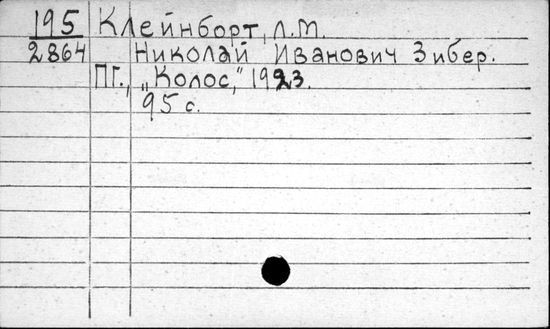 195 Клейнборт, Л.М.
2864 Николай Иванович Зибер.
ПГ., „Колос," 1923.
95 с.